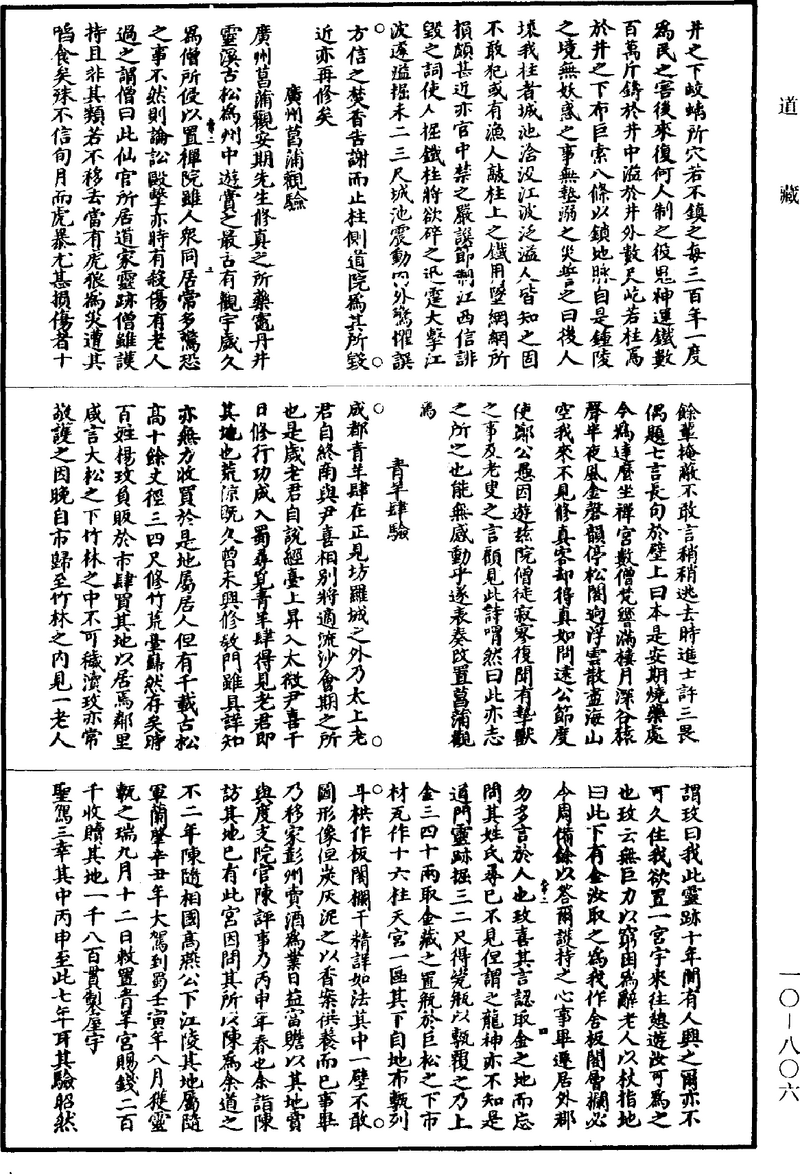 道藏
井之下蛟螭所穴若不鎮之每三百年一度
爲民之害後來復何人制之役鬼神運鐵數
百萬斤鑄於井中溢於井外數尺屹若柱焉
於井之下布巨索八條以鎖地脉自是鍾陵
之境無妖惑之事無墊溺之災誓之曰後人
壞我柱者城池淪沒江波泛溢人皆知之固
不敢犯或有漁人敲柱上之鐵用墜網網所
損頗甚近亦官中禁之嚴譔節制江西信誹
毀之詞使人掘鐵柱將欲碎之迅霆大擊江
波遽溢掘未二三尺城池震動內外驚懼譔
方信之焚香告謝而止柱側道院爲其所毀
近亦再修矣
廣州菖蒲觀驗
廣州菖蒲觀安期先生修真之所藥竈丹井
靈溪古松爲州中遊賞之最古有觀宇歲久
爲僧所侵以置禪院雖人衆同居常多驚恐
之事不然則論訟毆擊亦時有殺傷有老人
過之謂僧曰此仙官所居道家靈跡僧雖護
持且非其類若不移去當有虎狼爲災遭其
啗食矣殊不信旬月而虎暴尤甚損傷者十
餘輩掩蔽不敢言稍稍逃去時進士許三畏
偶題七言長句於壁上曰本是安期燒藥處
今爲達麽坐禪宮數僧梵響滿樓月深谷猿
聲半夜風金磬韻停松閣迥浮雲散盡海山
空我來不見修真客却得真如問遠公節度
使鄭公愚因遊茲院僧徒寂寥復聞有摯獸
之事及老叟之言顧見此詩喟然曰此亦志
之所之也能無感動乎遂表奏改置菖蒲觀
焉
青羊肆驗
成都青羊肆在正見坊羅城之外乃太上老
君自終南與尹喜相別將適流沙會期之所
也是歲老君自說經臺上昇入太微尹喜千
日修行功成入蜀尋覓青羊肆得見老君即
其地也荒涼既久曾未興修玄門雖具詳知
亦無力收買於是地屬居人但有千載古松
高十餘丈徑三四尺修竹荒臺巋然存矣時
百姓楊玫負販於市肆買其地以居焉鄰里
咸言大松之下竹林之中不可穢瀆玫亦常
敬護之因晚自市歸至竹林之內見一老人
謂玫曰我此靈跡十年間有人興之爾亦不
可久住我欲置一宮宇來往憩遊汝可爲之
也玫云無巨力以窮困爲辭老人以杖指地
曰此下有金汝取之爲我作舍板閣層欄必
令周備餘以荅爾護持之心事畢遷居外郡
勿多言於人也玫喜其言認取金之地而忘
問其姓氏尋已不見但謂之龍神亦不知是
道門靈跡掘三二尺得甕瓶以甎覆之乃上
金三四十兩取金藏之置瓶於巨松之下市
材瓦作十六柱天宮一區其下自地布甎列
斗栱作板閣欄干精詳如法其中一壁不敢
圖形像但炭灰泥之以香案供養而已事畢
乃移家彭州賣酒爲業日益富贍以其地賣
與度支院官陳評事乃丙申年春也余詣陳
訪其地已有此宮因問其所以陳爲余道之
不二年陳隨相國高燕公下江陵其地屬隨
軍蘭肇辛丑年大駕到蜀壬寅年八月獲靈
甎之瑞九月十二日敕置青羊宮賜錢二百
千收贖其地一千八百貫製屋宇
聖駕三幸其中丙申至此七年耳其驗昭然
一〇—八〇六